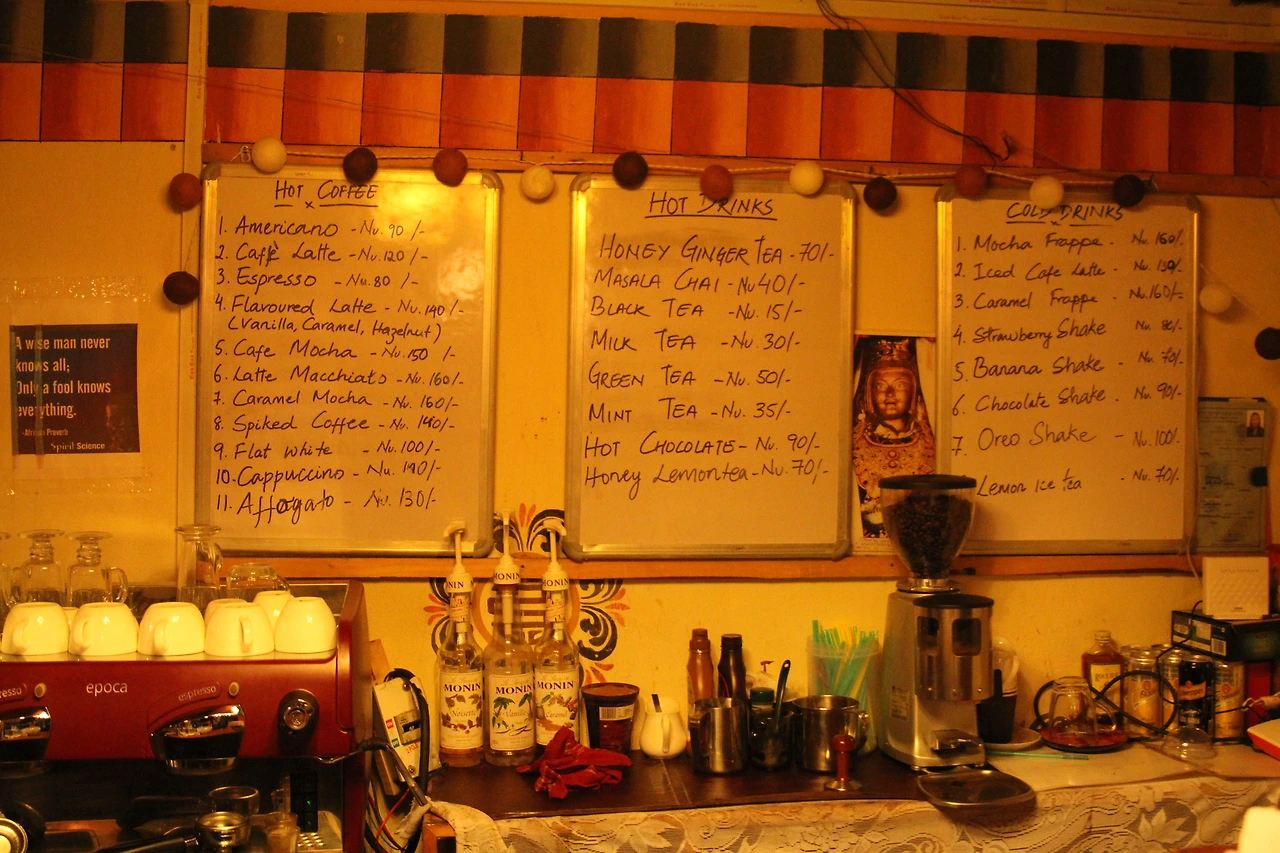 A wise man never
knows all;
Only a fool knows
everything.
-African Proverb
Spirit Science
HOT COFFEE
1. Americano - Nu. 90 /-
2. Caffe Latte - Nu.120 /-
3. Espresso - Nu. 80 /-
4. Flavoured Latte - Nu.140/-
(Vanilla, Caramel, Hazelnut)
5. Cafe Mocha - Nu.150 /-
6. Latte Macchiato - Nu.160/-
7. Caramel Mocha - Nu. 160/-
8. Spiked Coffee - Nu. 140/-
9. Flat white - Nu.100/-
10. Cappuccino - Nu. 140/-
11. Affogato - Nu. 130/-
HOT DRINKS
HONEY GINGER TEA - 70/-
MASALA CHAI - Nu 40/-
BLACK TEA - Nu. 15/-
MILK TEA - Nu. 30/-
GREEN TEA - Nu. 50/-
MINT TEA - Nu. 35/-
HOT CHOCOLATE - Nu. 90/-
Honey Lemon tea - Nu. 70/-
COLD DRINKS
1. Mocha Frappe - Nu. 160/-
2. Iced Cafe Latte - Nu. 130/-
3. Caramel Frappe - Nu.160/-
4. Strawberry Shake Nu. 80/-
5. Banana Shake - Nu. 70/-
6. Chocolate Shake - Nu. 90/-
7. Oreo Shake - Nu.100/-
Lemon Ice tea - Nu. 70/-
epoca
espresso
MONIN
Noisette
MONIN
Vanille
MONIN
Caramel